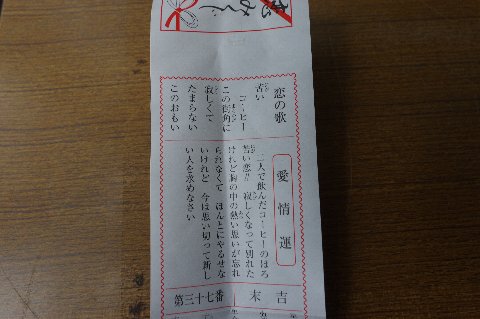 恋の歌
苦い
コーヒー
この街角に
寂しくて
たまらない
このおもい
愛情運
二人で飲んだコーヒーのほろ
苦い恋!! 寂しくなって別れた
けれど胸の中の熱い思いが忘れ
られなくて ほんとにやるせな
いけれど 今は思い切って新し
い人を求めなさい
末吉
第三十七番